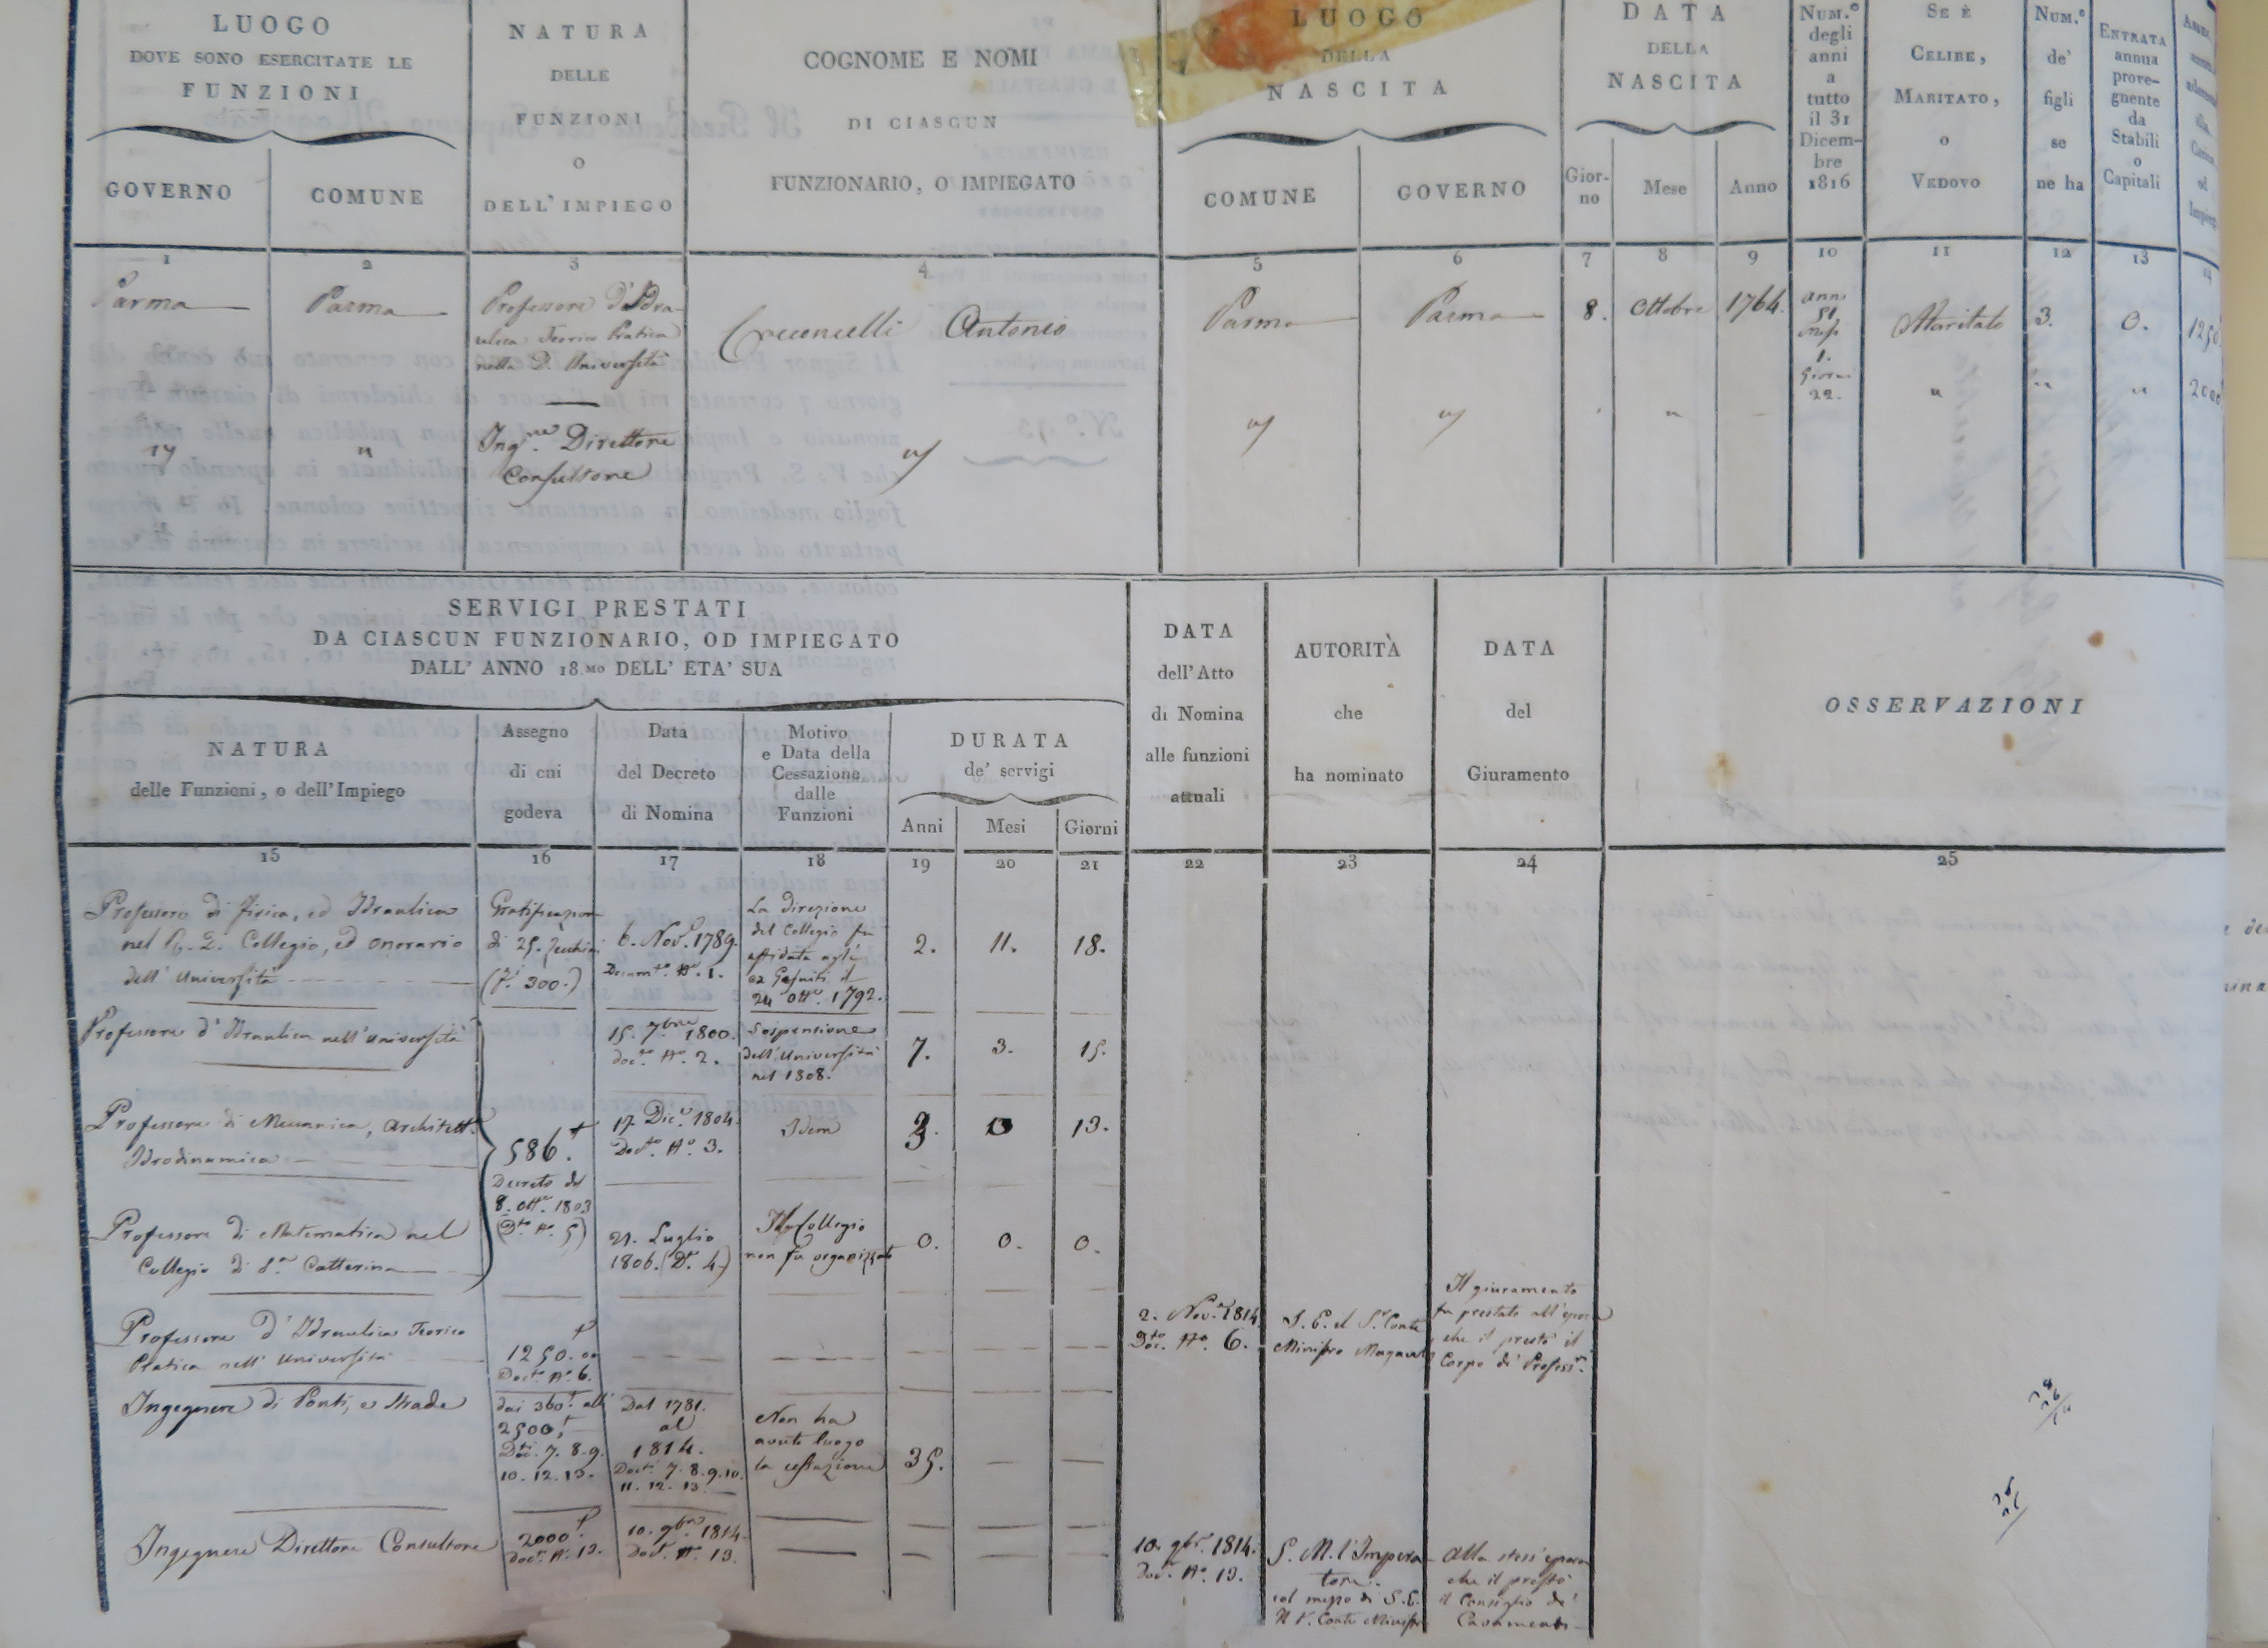 LUOGO
DOVE SONO ESERCITATE LE
FUNZIONI
GOVERNO
COMUNE
NATURA
DELLE
FUNZIONI
O
DELL' IMPIEGO
COGNOME E NOMI
DI CIASCUN
FUNZIONARIO, O IMPIEGATO
LUOGO
DELLA
NASCITA
COMUNE
GOVERNO
DATA
DELLA
NASCITA
Gior-
no
Mese
Anno
Num.º
degli
anni
a
tutto
il 31
Dicem-
bre
1816
Se è
Celibe,
Maritato,
o
Vedovo
Num.º
de'
figli
se
ne ha
Entrata
annua
prove-
gnente
da
Stabili
o
Capitali
1 2 3 4 5 6 7 8 9 10 11 12 13
Parma
Parma
Professore d'Idra-
ulica Teorico Pratica
nella D. Università
Cocconcelli Antonio
Parma
Parma
8.
Ottobre
1764.
anni
51
mesi
1.
Giorni
22.
Maritato
3.
0.
1250
"
"
Ing.re Direttore
Consultore
"
"
"
"
"
"
"
2000
SERVIGI PRESTATI
DA CIASCUN FUNZIONARIO, OD IMPIEGATO
DALL' ANNO 18.MO DELL' ETA' SUA
NATURA
delle Funzioni, o dell'Impiego
Assegno
di cui
godeva
Data
del Decreto
di Nomina
Motivo
e Data della
Cessazione
dalle
Funzioni
DURATA
de' servigi
Anni
Mesi
Giorni
DATA
dell'Atto
di Nomina
alle funzioni
attuali
AUTORITÀ
che
ha nominato
DATA
del
Giuramento
OSSERVAZIONI
15 16 17 18 19 20 21 22 23 24 25
Professore di fisica, ed Idraulica
nel Collegio, ed onorario
dell' Università
Gratificazion
di 25. Zecchini
(f. 300.)
6. Nov. 1789.
Docum.to N.º 1.
La direzione
del Collegio fu
affidata agli
ex Gesuiti il
24 Ott.e 1792.
2.
11.
18.
Professore d'Idraulica nell'università
15. 7bre 1800.
doc.to N.º 2.
Sospensione
dell'Università
nel 1808.
7.
3.
15.
Professore di Meccanica, Architett.
Idrodinamica
586.
Decreto del
8. Ott.e 1803
(D.to N.º 5)
17. Dic.e 1804.
Doc.to N.º 3.
Idem
3.
0
13.
Professore di Matematica nel
Collegio di S.ta Catterina
21. Luglio
1806. (D.to 4.)
Il Collegio
non fu organizzato
0.
0.
0.
Professore d'Idraulica Teorico
Pratica nell' Università
1250.00
Doc.to N.º 6.
2. Nov.e 1814
Doc. N.º 6.
S. E. il S.r Conte
Ministro Magawly
Il giuramento
fu prestato all'epoca
che il prestò il
Corpo de' Profess.ri
Ingegnere di Ponti, e Strade
dai 360 alli
2500,
Doc.ti 7. 8. 9.
10. 12. 13.
Dal 1781.
al
1814.
Doc.ti 7. 8. 9. 10.
11. 12. 13.
Non ha
avuto luogo
la cessazione
35.
Ingegnere Direttore Consultore
2000.
Doc.to N.º 13.
10. 9bre 1814.
Doc.to N.º 13.
10. 9bre 1814.
Doc. N.º 13.
S. M. l'Impera-
tore.
col mezzo di S. E.
il S.r Conte Ministro
Alla stess' epoca
che il prestò
il Consiglio de'
Cavamenti